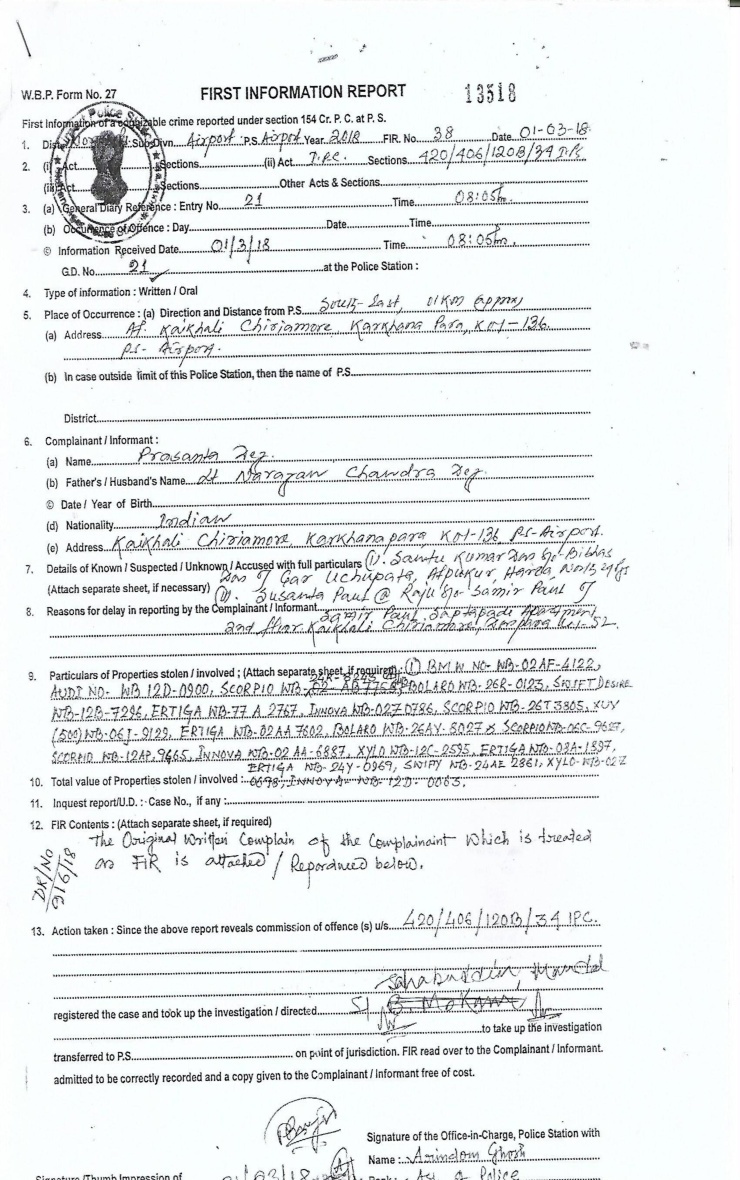 W.B.P. Form No. 27 FIRST INFORMATION REPORT 13518
First Information of a cognizable crime reported under section 154 Cr. P. C. at P. S.
1. Dist. Sub Divn. Airport P.S. Airport Year 2018 FIR. No. 38 Date 01-03-18
2. (i) Act Sections (ii) Act I.P.C. Sections 420/406/120B/34 I.P.C
(iii) Act Sections Other Acts & Sections
3. (a) General Diary Reference : Entry No. 21 Time 08:05
(b) Occurrence of Offence : Day Date Time
© Information Received Date 01/3/18 Time 08:05
G.D. No. 21 at the Police Station :
4. Type of information : Written / Oral
5. Place of Occurrence : (a) Direction and Distance from P.S. South-East, 01 KM
(a) Address At. Kaikhali Chiriamore, Karkhana Para, Kol-136
P.S- Airport.
(b) In case outside limit of this Police Station, then the name of P.S.
District
6. Complainant / Informant :
(a) Name Prasanta Dey.
(b) Father's / Husband's Name Lt Narayan Chandra Dey.
© Date / Year of Birth
(d) Nationality Indian
(e) Address Kaikhali Chiriamore, Karkhanapara, Kol-136, P.S-Airport.
7. Details of Known / Suspected / Unknown / Accused with full particulars (i). Santu Kumar Das S/o- Bibhas
(Attach separate sheet, if necessary) Das of Gar Uchupata, Atpukur, Haroa,
(ii). Susanta Paul @ Raju S/o Samir Paul of
8. Reasons for delay in reporting by the Complainant / Informant Samir Paul, Saptapadi Apartment
2nd floor Kaikhali Chiriamore, Kol-52.
9. Particulars of Properties stolen / involved ; (Attach separate sheet, if required) : (1) BMW NO- WB-02AF-4122,
AUDI NO- WB 12D-0900, SCORPIO WB- BOLARO WB-26R-0123, SWIFT DESIRE
WB-12B-7296, ERTIGA WB-77 A 2767, INNOVA WB-02Z 0786, SCORPIO WB-26T 3805, XUV
(500) WB-06J-9129, ERTIGA WB-02AA 7602, BOLARO WB-26AY-5027 & SCORPIO WB-06C-9627,
SCORPIO WB-12AP, 9665, INNOVA WB-02 AA-6887, XYLO WB-12C-2595, ERTIGA WB-03A-1597,
ERTIGA WB-24Y-0969, SWIFT WB-24AE 2861, XYLO-WB-02Z
10. Total value of Properties stolen / involved : 0698, INNOVA WB 12D-0063.
11. Inquest report/U.D. : Case No., if any :
12. FIR Contents : (Attach separate sheet, if required)
The Original Written Complain of the Complainant Which is treated
as FIR is attached / Repordnced below.
DR/No
9/6/18
13. Action taken : Since the above report reveals commission of offence (s) u/s. 420/406/120B/34 IPC.
Sahabuddin, Mandal
registered the case and took up the investigation / directed SI
to take up the investigation
transferred to P.S. on point of jurisdiction. FIR read over to the Complainant / Informant.
admitted to be correctly recorded and a copy given to the Complainant / Informant free of cost.
Signature of the Office-in-Charge, Police Station with
Name : Arindam Ghosh
Signature/Thumb Impression of 01/03/18 ASI of Police